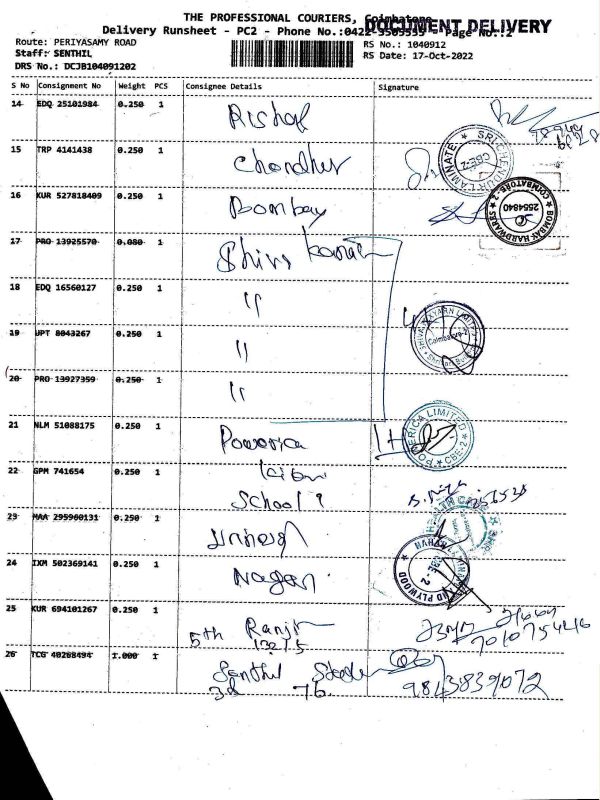 THE PROFESSIONAL COURIERS, Coimbatore
DOCUMENT DELIVERY
Delivery Runsheet - PC2 - Phone No.:0422-3509555 - Page No.:2
Route: PERIYASAMY ROAD
RS No.: 1040912
Staff: SENTHIL
RS Date: 17-Oct-2022
DRS No.: DCJB104091202
S No Consignment No Weight PCS Consignee Details Signature
14 EDQ 25101984 0.250 1 Rishab
15 TRP 4141438 0.250 1 Chandher
SRI CHENDUR LAMINATE CBE-2
16 KUR 527818409 0.250 1 Bombay
BOMBAY HARDWARES COIMBATORE-2 2554840
17 PRO 13925570 0.080 1 Shiva
18 EDQ 16560127 0.250 1 "
SHIVA YARN LIMITED Coimbatore-2
19 UPT 8043267 0.250 1 "
20 PRO 13927359 0.250 1 "
21 NLM 51088175 0.250 1 Powerica
POWERICA LIMITED CBE-2
22 GPM 741654 0.250 1
School
23 MAA 295960131 0.250 1
HEALTH CARE
24 IXM 502369141 0.250 1 Nagari
AND PLYWOOD CBE-2
25 KUR 694101267 0.250 1 Ranjit
5th
26 TCG 40268494 1.000 1 Senthil
9843839072
3d 76